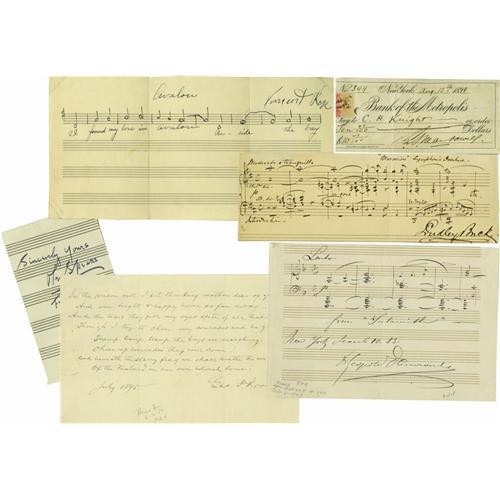 Avalon
Vincent Rose
I found my love in Avalon Be-side the bay
No. 344 New York Aug 12th 1898
Bank of the Metropolis
Pay to C. H. Knight or order
Dollars
$10.00
Moderato e tranquillo "Marmion" Symphonic Overture
Introduction
Dudley Buck
Sincerely Yours
In the prison cell I sit thinking mother dear of you
And our bright and happy home so far away
And the tears they fill my eyes spite of all that I can do
Though I try to cheer my comrades and be gay
Tramp tramp tramp the boys are marching
Cheer up comrades they will come
And beneath the starry flag we shall breathe the air again
Of the freeland in our own beloved home.
July 1895 Geo. F. Root
from
New York March 16. 83.
Leopold Damrosch